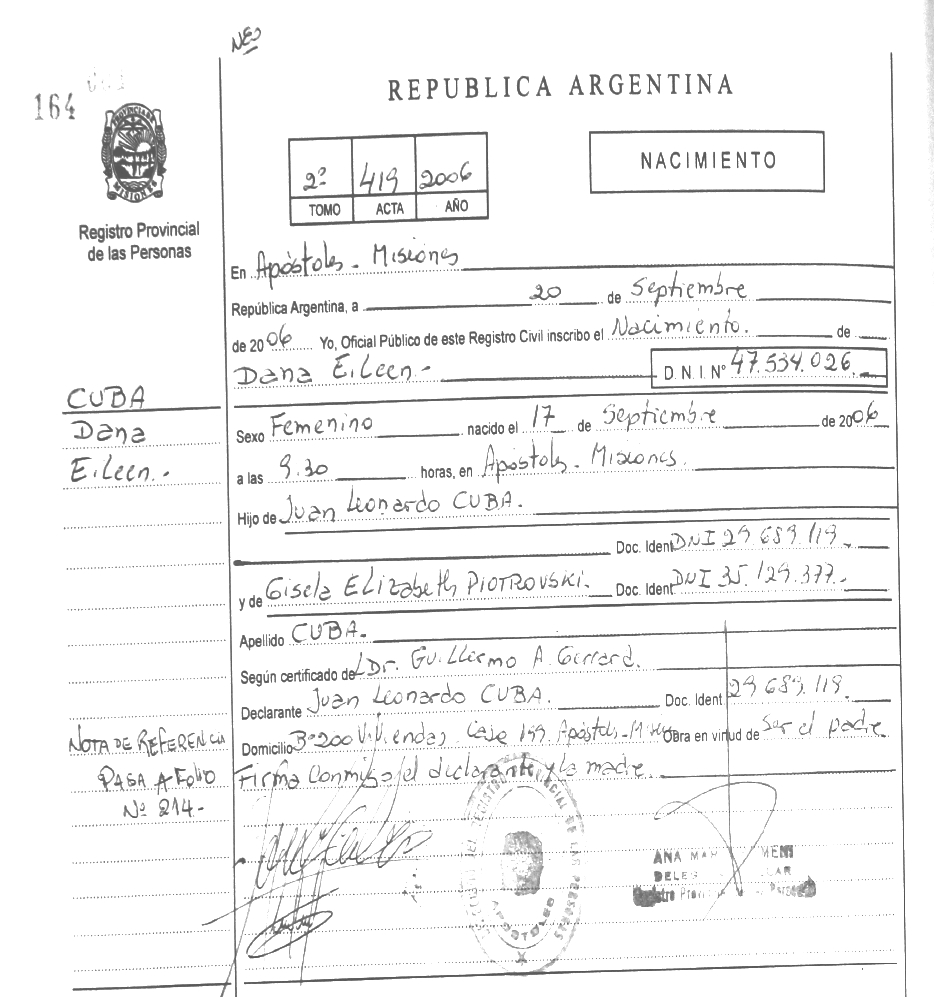 NES
164
REPUBLICA ARGENTINA
PROVINCIA DE
MISIONES
Registro Provincial
de las Personas
2º 419 2006
TOMO ACTA AÑO
NACIMIENTO
En Apóstoles - Misiones
República Argentina, a 20 de Septiembre
de 2006 Yo, Oficial Público de este Registro Civil inscribo el Nacimiento. de
Dana Eileen.- D.N.I.Nº 47.534.026.
CUBA
Dana
Eileen.-
Sexo Femenino nacido el 17 de Septiembre de 2006
a las 9.30 horas, en Apóstoles. Misiones.
Hijo de Juan Leonardo CUBA.
Doc. Ident DNI 29.689.119.
y de Gisela ELizabeth PIOTROVSKI. Doc. Ident DNI 35.129.377.-
Apellido CUBA.
Según certificado del Dr. Guillermo A.
Declarante Juan Leonardo CUBA. Doc. Ident 29.689.119.
NOTA DE REFERENCIA
PASA A FOLIO
Nº 214.-
Domicilio Bº 200 Viviendas Casa Apóstoles - Obra en virtud de Ser el padre.
Firma Conmigo el declarante y la madre.
REGISTRO PROVINCIAL DE LAS PERSONAS
APOSTOLES
ANA
DELE